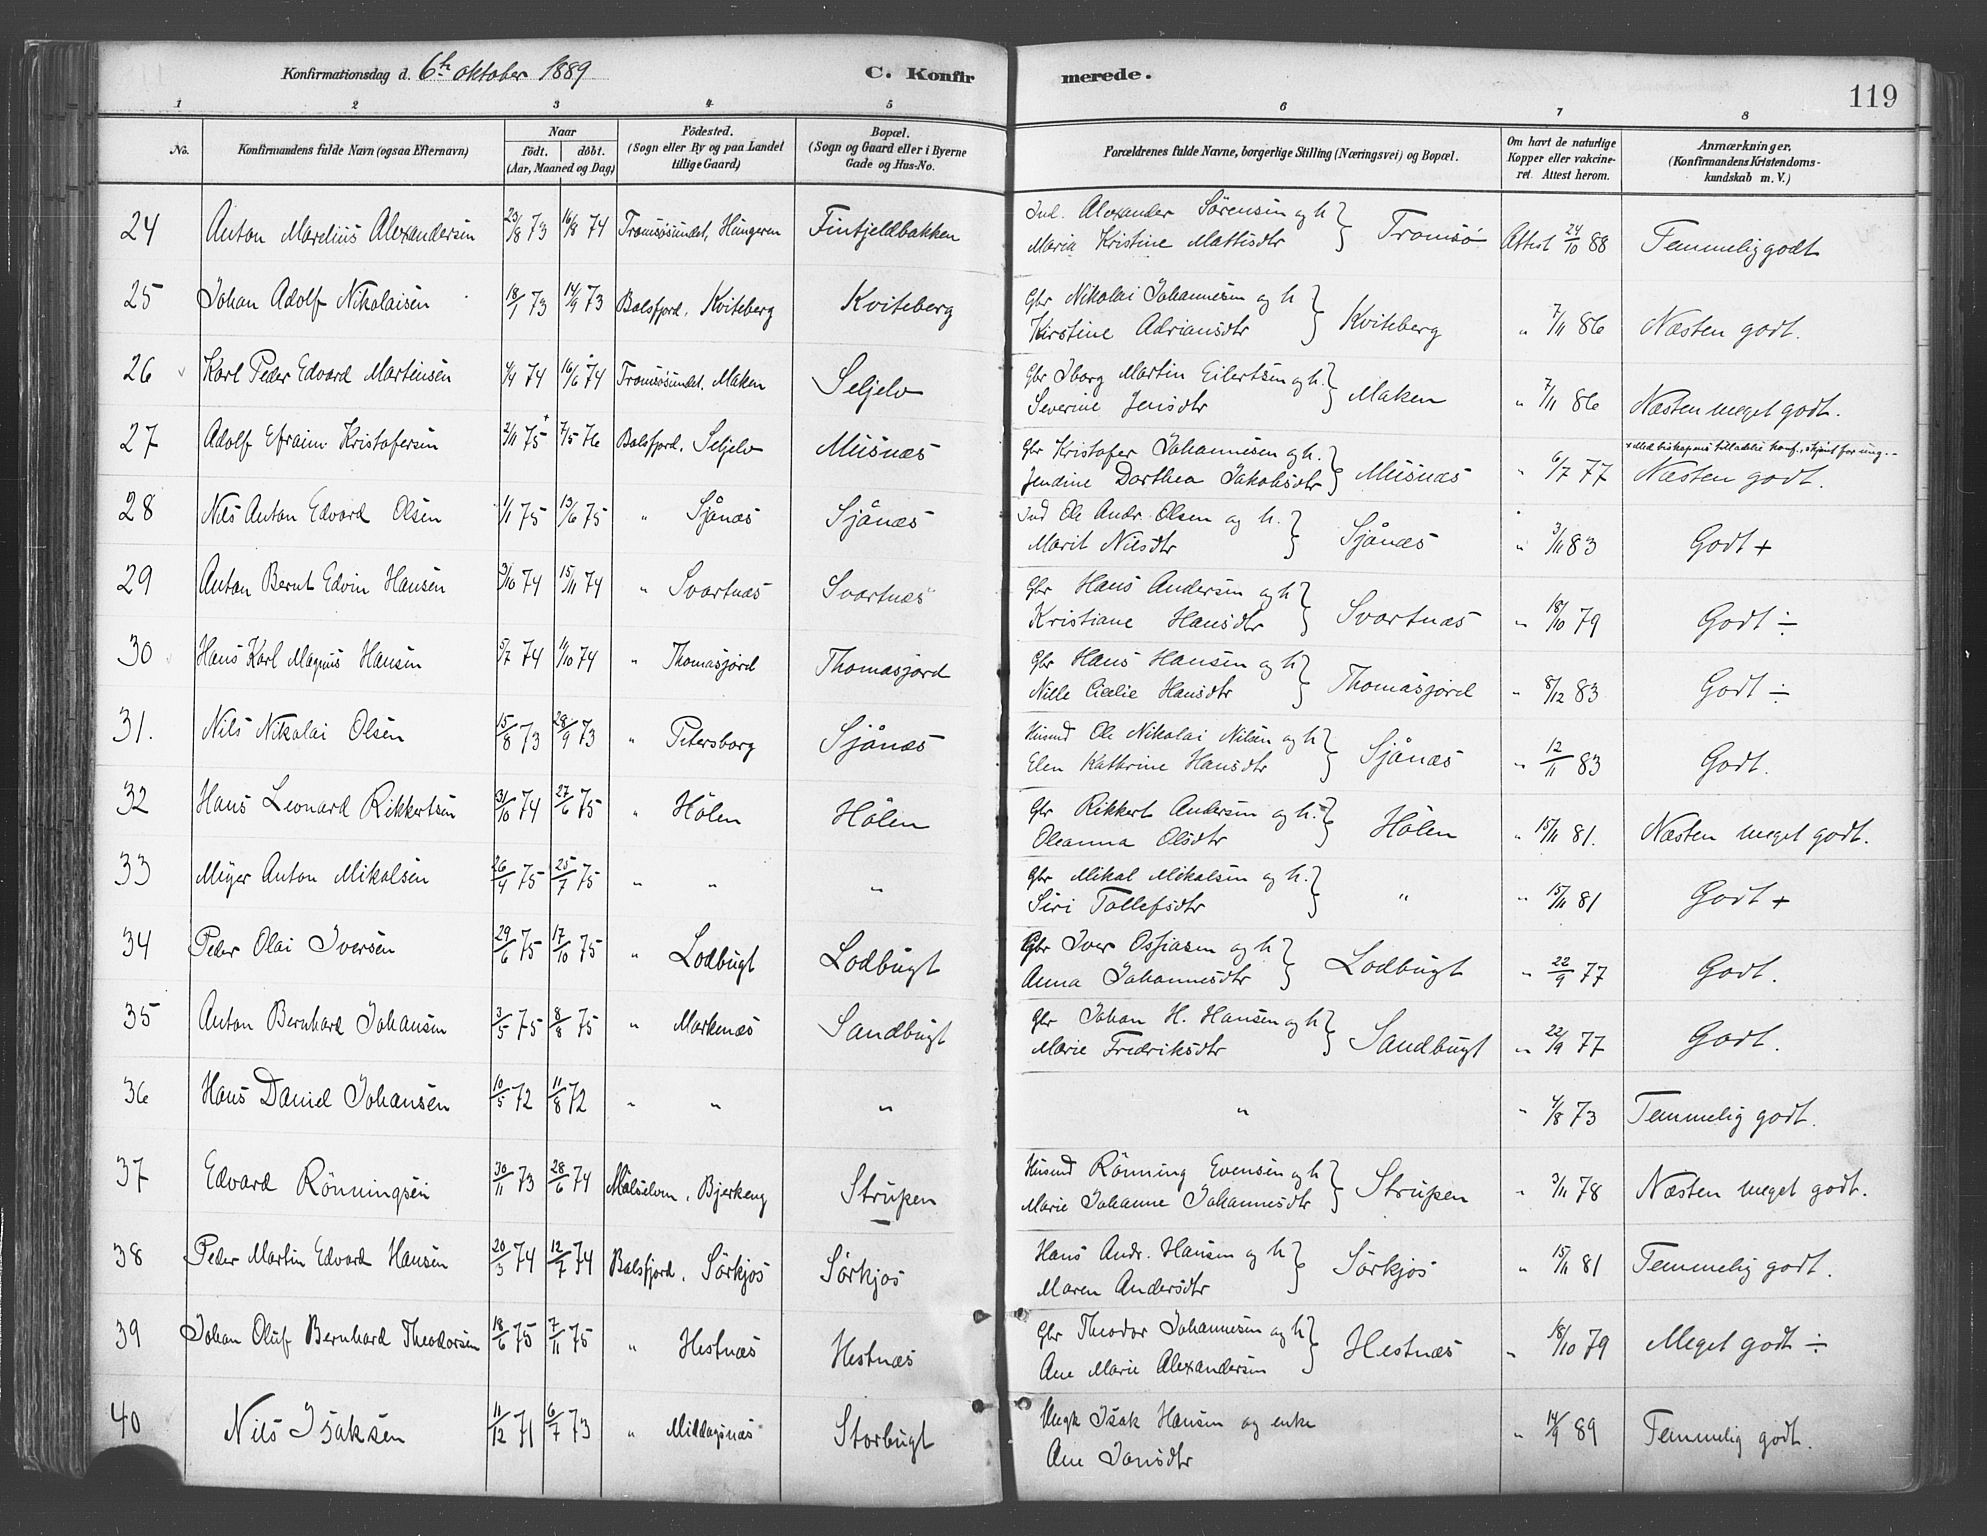 Konfirmationsdag d. 6te oktober 1889 C. Konfirmerede. 119
1 2 3 4 5 6 7 8
No. Konfirmandens fulde Navn (ogsaa Efternavn) Naar født. døbt. (Aar, Maaned og Dag) Födested. (Sogn eller By og paa Landet tillige Gaard) Bopæl. (Sogn og Gaard eller i Byerne Gade og Hus-No. Forældrenes fulde Navne, borgerlige Stilling (Næringsvei) og Bopæl. Om havt de naturlige Kopper eller vakcineret. Attest herom. Anmærkninger. (Konfirmandens Kristendomskundskab m. V.)
24 Anton Marelius Alexandersen 23/8 73 16/8 74 Tromsøsundet, Hungeren Finfjeldbakken Ind. Alexander Sörensen og h
Maria Kristine Mattisdtr } Tromsö Attest 24/10 88 Temmelig godt
25 Johan Adolf Nikolaisen 18/1 73 14/9 73 Balsfjord, Kviteberg Kviteberg Gbr Nikolai Johannesen og h
Kirstine Adriansdtr } Kviteberg " 7/11 86 Næsten godt.
26 Karl Peder Edvard Martinsen 4/4 74 16/6 74 Tromsösundet, Maken Seljelv Gbr Iborg Martin Eilertsen og h.
Severine Jensdtr } Maken " 7/11 86 Næsten meget godt.
27 Adolf Efraim Kristofersen 2/11 75 + 7/5 76 Balsfjord, Seljelv Meisnæs Gbr Kristofer Johannesen og h.
Jendine Dorthea Jakobsdtr } Meisnæs " 6/7 77 + Med biskopens tilladelse konf., skjönt for ung.
Næsten godt.
28 Nils Anton Edvard Olsen 1/1 75 13/6 75 " Sjånæs Sjånæs Ind Ole Andr. Olsen og h.
Marit Nilsdtr } Sjånæs " 3/11 83 Godt +
29 Anton Bernt Edvin Hansen 3/10 74 15/11 74 " Svartnæs Svartnæs Gbr Hans Andersen og h
Kristiane Hansdtr } Svartnæs " 18/10 79 Godt ÷
30 Hans Karl Magnus Hansen 5/7 74 4/10 74 " Thomasjord Thomasjord Gbr Hans Hansen og h
Nille Cicelie Hansdtr } Thomasjord " 8/12 83 Godt ÷
31. Nils Nikolai Olsen 15/8 73 28/9 73 " Petersborg Sjånæs Husmd Ole Nikolai Nilsen og h
Elen Kathrine Hansdtr } Sjånæs " 12/11 83 Godt.
32 Hans Leonard Rikkertsen 31/10 74 27/6 75 " Hölen Hölen Gbr Rikkert Andersen og h.
Oleanna Olsdtr } Hölen " 15/11 81. Næsten meget godt.
33 Meyer Anton Mikalsen 26/4 75 25/7 75 " " " Gbr Mikal Mikalsen og h.
Siri Tollefsdtr } " " 15/11 81 Godt +
34 Peder Olai Iversen 29/6 75 17/10 75 " Lodbugt Lodbugt Gbr Iver Ossiasen og h
Anna Johannesdtr } Lodbugt " 22/9 77 Godt.
35 Anton Bernhard Johansen 3/5 75 8/8 75 " Markenæs Sandbugt Gbr Johan H. Hansen og h
Marie Fredriksdtr } Sandbugt " 22/9 77 Godt.
36 Hans Daniel Johansen 10/5 72 11/8 72 " " " " " 4/8 73 Temmelig godt.
37 Edvard Rönningsen 30/11 73 28/6 74 Målselven, Bjerkeng Strupen Husmd Rönning Evensen og h
Marie Johanne Johannesdtr } Strupen " 3/11 78 Næsten meget godt.
38 Peder Martin Edvard Hansen 20/3 74 12/7 74 Balsfjord, Sörkjos Sörkjos Hans Andr. Hansen og h
Maren Andersdtr } Sörkjos " 15/11 81 Temmelig godt.
39 Johan Oluf Bernhard Theodorsen 18/6 75 7/11 75 " Hestnæs Hestnæs Gbr Theodor Johannesen og h
Ane Marie Alexandersen } Hestnæs " 18/10 79 Meget godt ÷
40 Nils Isaksen 11/12 71 6/7 73 " Middagsnæs Storbugt Ungk Isak Hansen og enke
Ane Jonsdtr " 14/9 89 Temmelig godt.